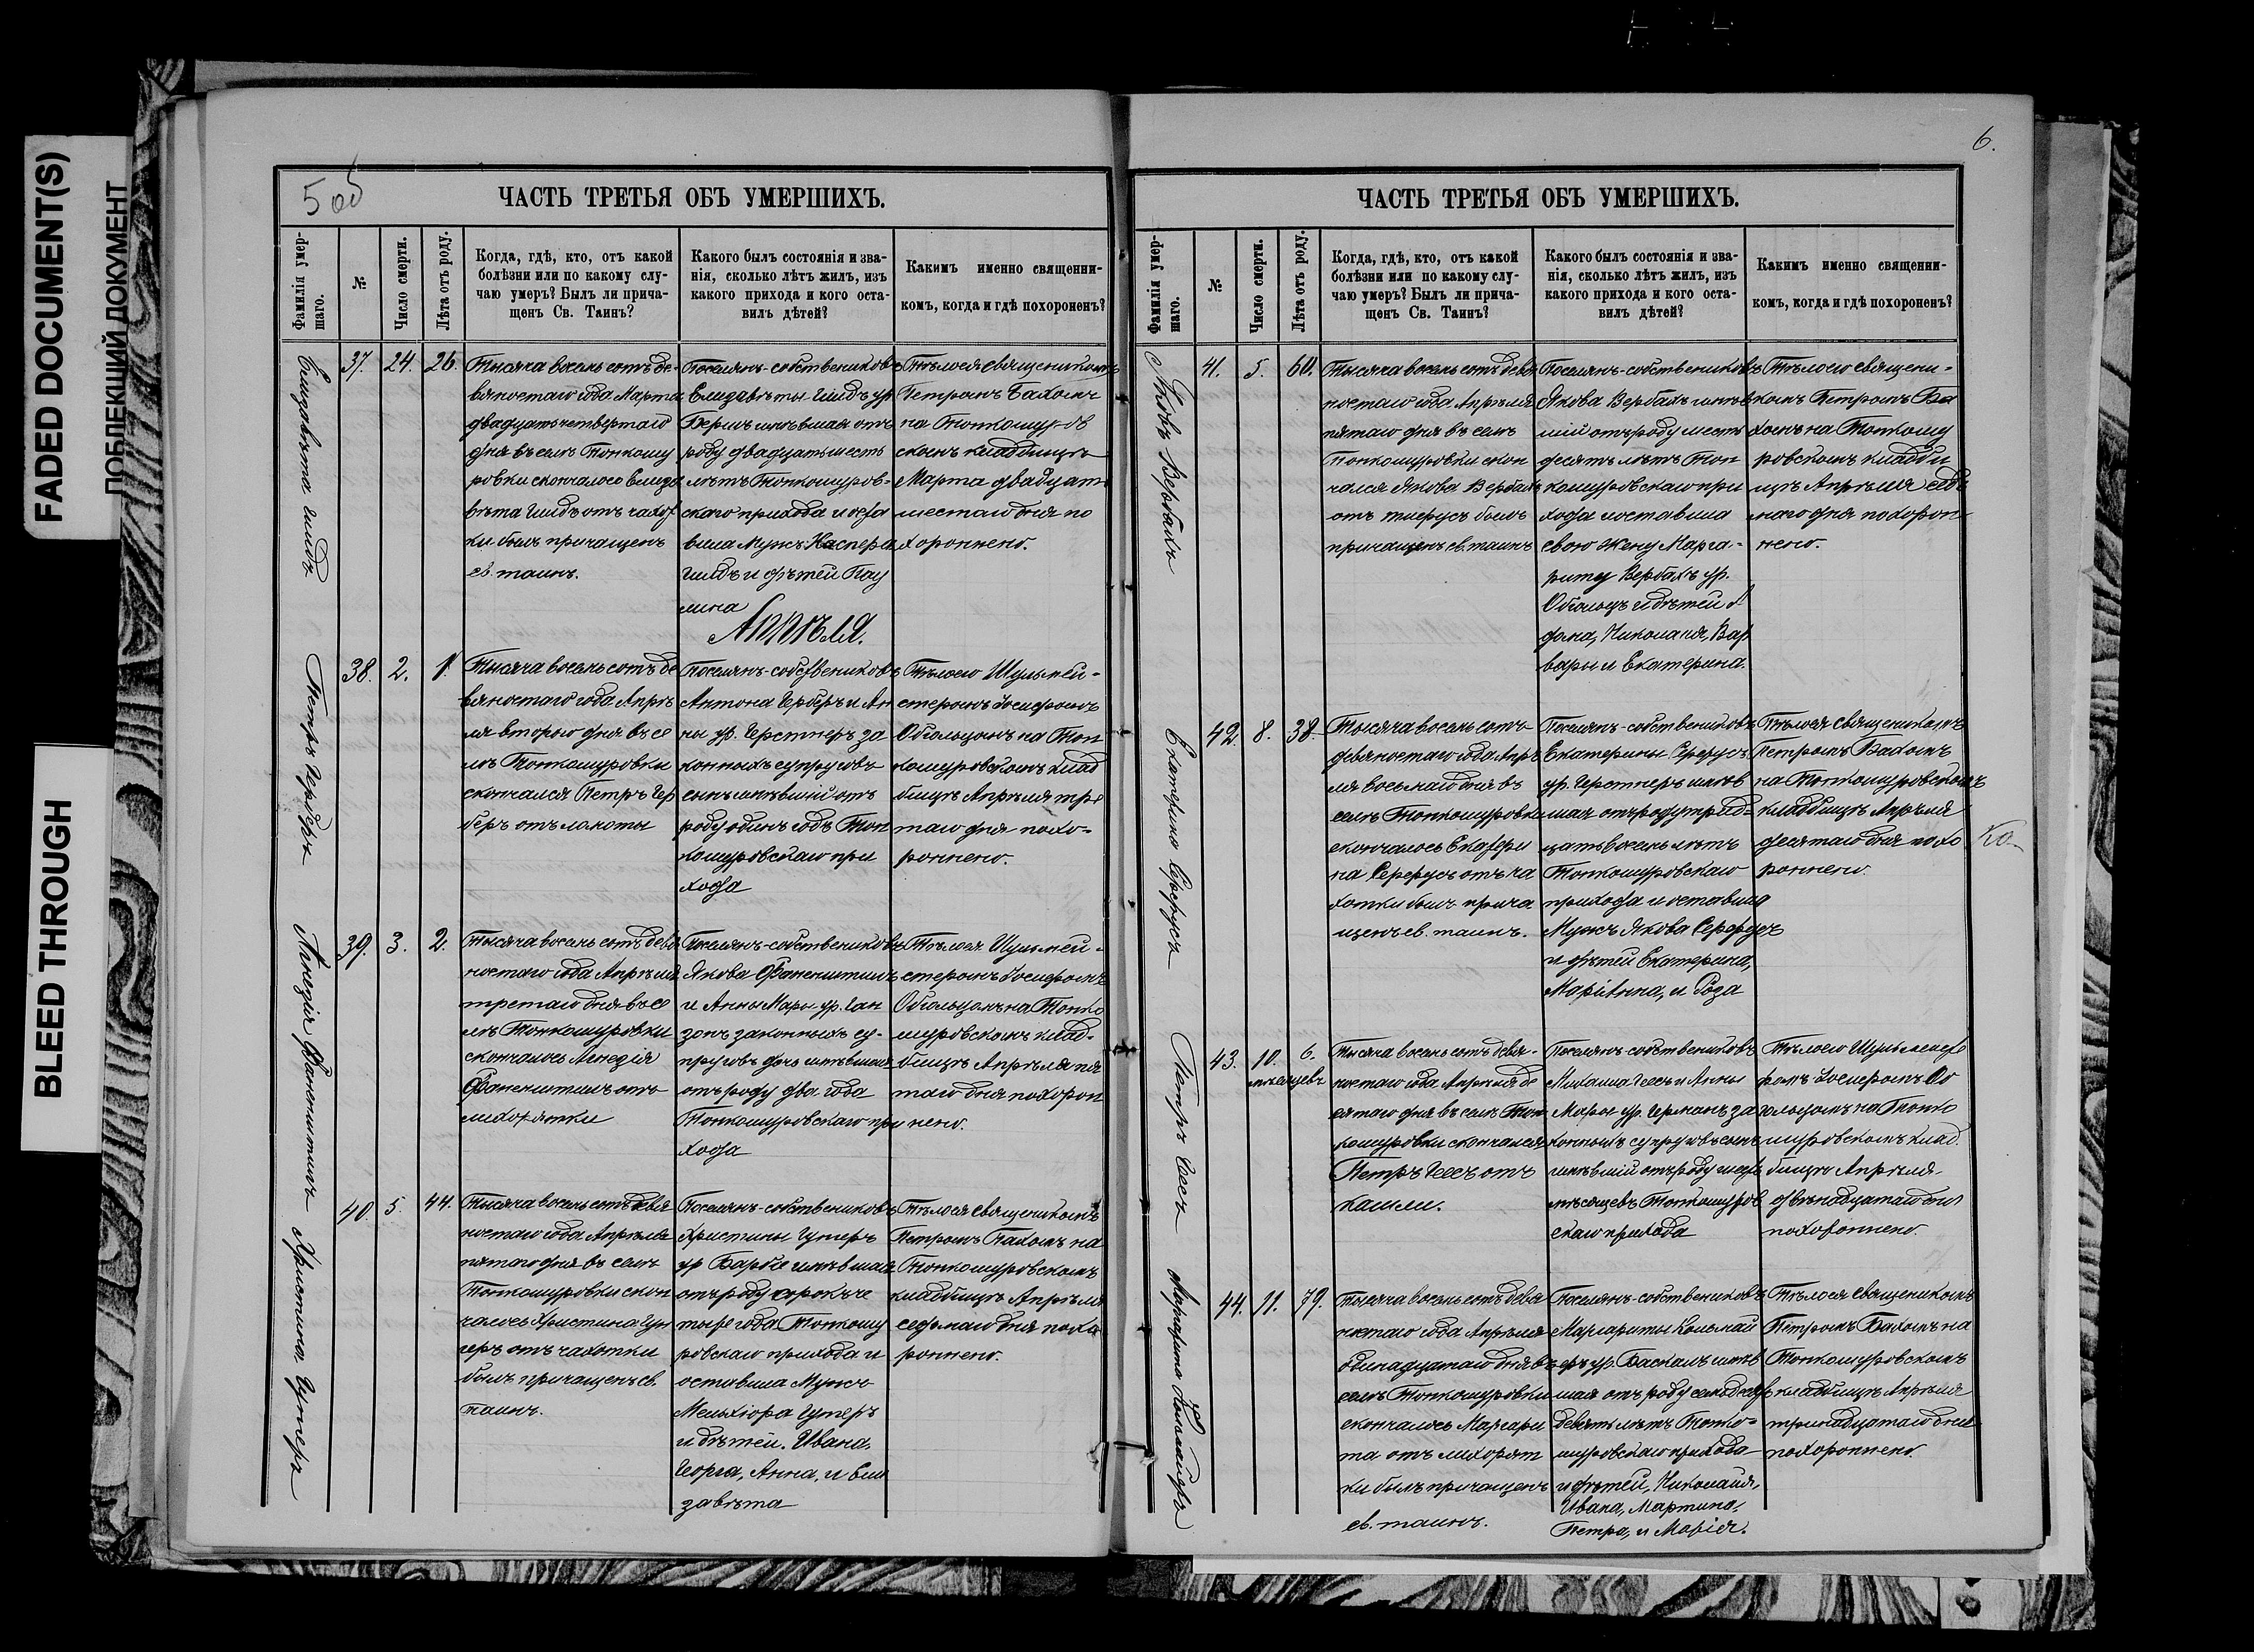 FADED DOCUMENT(S)
ПОБЛЕКШИЙ ДОКУМЕНТ
BLEED THROUGH
5 об
ЧАСТЬ ТРЕТЬЯ ОБЪ УМЕРШИХЪ.
Фамилія умер-
шаго.
№
Число смерти.
Лѣта отъ роду.
Когда, гдѣ, кто, отъ какой
болѣзни или по какому слу-
чаю умеръ? Былъ ли прича-
щенъ Св. Таинъ?
Какого былъ состоянія и зва-
нія, сколько лѣтъ жилъ, изъ
какого прихода и кого оста-
вилъ дѣтей?
Какимъ именно священни-
комъ, когда и гдѣ похороненъ?
Елизавѣта Гильдъ
37. 24. 26.
Тысяча восемь сотъ де-
вяностаго года Марта
двадцать четвертаго
дня въ селѣ Тонкошу
ровки скончалось Елиза
вѣта Гильдъ отъ чахот
ки былъ причащенъ
св. таинъ.
Поселянъ-собствениковъ
Елизавѣты Гильдъ ур
Бермъ имѣвшая отъ
роду двадцать шесть
лѣтъ Тонкошуров-
скаго прихода и оста
вила Мужъ Каспера
Гильдъ и дѣтей Пау
лина
Тѣлоея священикомъ
Петромъ Бахомъ
на Тонкошуров
скомъ кладбищѣ
Марта двадцат
шестаго дня по
хороннено.
Апрѣля.
Петръ Герберъ
38. 2. 1.
Тысяча восемь сотъ де
вяностаго года Апрѣ
ля второго дня въ се
лѣ Тонкошуровки
скончался Петръ Гер
беръ отъ ломоты
Поселянъ-собствениковъ
Антона Герберъ и Ан
ны ур. Герстнеръ за
конныхъ супруговъ
сынъ имѣвшій отъ
роду одинъ годъ Тон
кошуровскаго при
хода
Тѣлоего Шульмей-
стеромъ Іосифомъ
Обгольцомъ на Тон
кошуровскомъ клад
бищѣ Апрѣля тре
таго дня похо-
роннено.
39. 3. 2.
Тысяча восемь сотъ девя
ностаго года Апрѣля
третаго дня въ се
лѣ Тонкошуровки
скончалось
отъ
лихорятки
Поселянъ-собствениковъ
Якова
и Анны Маріи ур. Ган
зонъ законныхъ су-
пруговъ дочь имѣвшая
отъ роду два года
Тонкошуровскаго при
хода
Тѣлоея Шульмей-
стеромъ Іосифомъ
Обгольцомъ на Тонко
шуровскомъ клад-
бищѣ Апрѣля пя
таго дня похорон
нено.
Христина Гутеръ
40. 5. 44.
Тысяча восемь сотъ девя
ностаго года Апрѣля
пятаго дня въ селѣ
Тонкошуровки скон
чалось Христина Гут
геръ отъ чахотки
былъ причащенъ св.
таинъ.
Поселянъ-собствениковъ
Христины Гутеръ
ур Барбіе имѣвшая
отъ роду сорокъ че
тыре года Тонкошу
ровскаго прихода и
оставила Мужъ
Мельхіора Гутеръ
и дѣтей. Ивана,
Георга, Анна, и Ели
завѣта
Тѣлоея священикомъ
Петромъ Бахомъ на
Тонкошуровскомъ
кладбищѣ Апрѣля
седьмаго дня похо
роннено.
6.
ЧАСТЬ ТРЕТЬЯ ОБЪ УМЕРШИХЪ.
Фамилія умер-
шаго.
№
Число смерти.
Лѣта отъ роду.
Когда, гдѣ, кто, отъ какой
болѣзни или по какому слу-
чаю умеръ? Былъ ли прича-
щенъ Св. Таинъ?
Какого былъ состоянія и зва-
нія, сколько лѣтъ жилъ, изъ
какого прихода и кого оста-
вилъ дѣтей?
Какимъ именно священни-
комъ, когда и гдѣ похороненъ?
Яковъ Вербахъ
41. 5. 60.
Тысяча восемь сотъ девя
ностаго года Апрѣля
пятаго дня въ селѣ
Тонкошуровки скон
чался Якова Вербахъ
отъ былъ
причащенъ св. таинъ
Поселянъ-собствениковъ
Якова Вербахъ имѣв
шій отъ роду шесть
десятъ лѣтъ Тон
кошуровскаго при
хода и оставила
свою жену Марга-
риту Вербахъ ур.
Обгольцъ и дѣтей А
дама, Николая, Вар
вары и Екатерина.
Тѣлоего священи-
комъ Петромъ Ба
хомъ на Тонкошу
ровскомъ кладби
щѣ Апрѣля седь
маго дня похорон
нено.
Екатерина Серфусъ
42. 8. 38.
Тысяча восемь сотъ
девяностаго года Апрѣ
ля восьмаго дня въ
селѣ Тонкошуровки
скончалось Екатери
на Серфусъ отъ ча
хотки былъ прича
щенъ св. таинъ.
Поселянъ-собствениковъ
Екатерины Серфусъ
ур. Герстнеръ имѣв
шая отъ роду трид-
цать восемь лѣтъ
Тонкошуровскаго
прихода и оставила
Мужъ Якова Серфусъ
и дѣтей Екатерина,
МаріАнна, и Роза
Тѣлоея священикомъ
Петромъ Бахомъ
на Тонкошуровскомъ
кладбищѣ Апрѣля
десятаго дня похо
роннено.
Ко
Петръ Гесъ
43. 10. 6.
мѣсяцевъ
Тысяча восемь сотъ девя-
ностаго года Апрѣля де
сятаго дня въ селѣ Тон
кошуровки скончался
Петръ Гесъ отъ
кашли.
Поселянъ-собствениковъ
Михаила Гесъ и Анны
Маріи ур. Германъ за
конныхъ супруговъ сынъ
имѣвшій отъ роду шесть
мѣсяцевъ Тонкошуров
скаго прихода
Тѣлоего Шульмейсте
ромъ Іосифомъ Об
гольцомъ на Тонко
шуровскомъ клад
бищѣ Апрѣля
двѣнадцатаго дня
похороннено.
Маргарита Кольмайеръ
44. 11. 79.
Тысяча восемь сотъ девя
ностаго года Апрѣля
одинадцатаго дня въ
селѣ Тонкошуровки
скончалось Маргари
та отъ лихорят
ки былъ причащенъ
св. таинъ.
Поселянъ-собствениковъ
Маргариты Кольмай
еръ ур. Баскаль имѣв
шая отъ роду семьдесятъ
девять лѣтъ Тонко-
шуровскаго прихода
и дѣтей, Николая,
Ивана, Мартина,
Петра, и Марія.
Тѣлоея священикомъ
Петромъ Бахомъ на
Тонкошуровскомъ
кладбищѣ Апрѣля
тринадцатаго дня
похороннено.